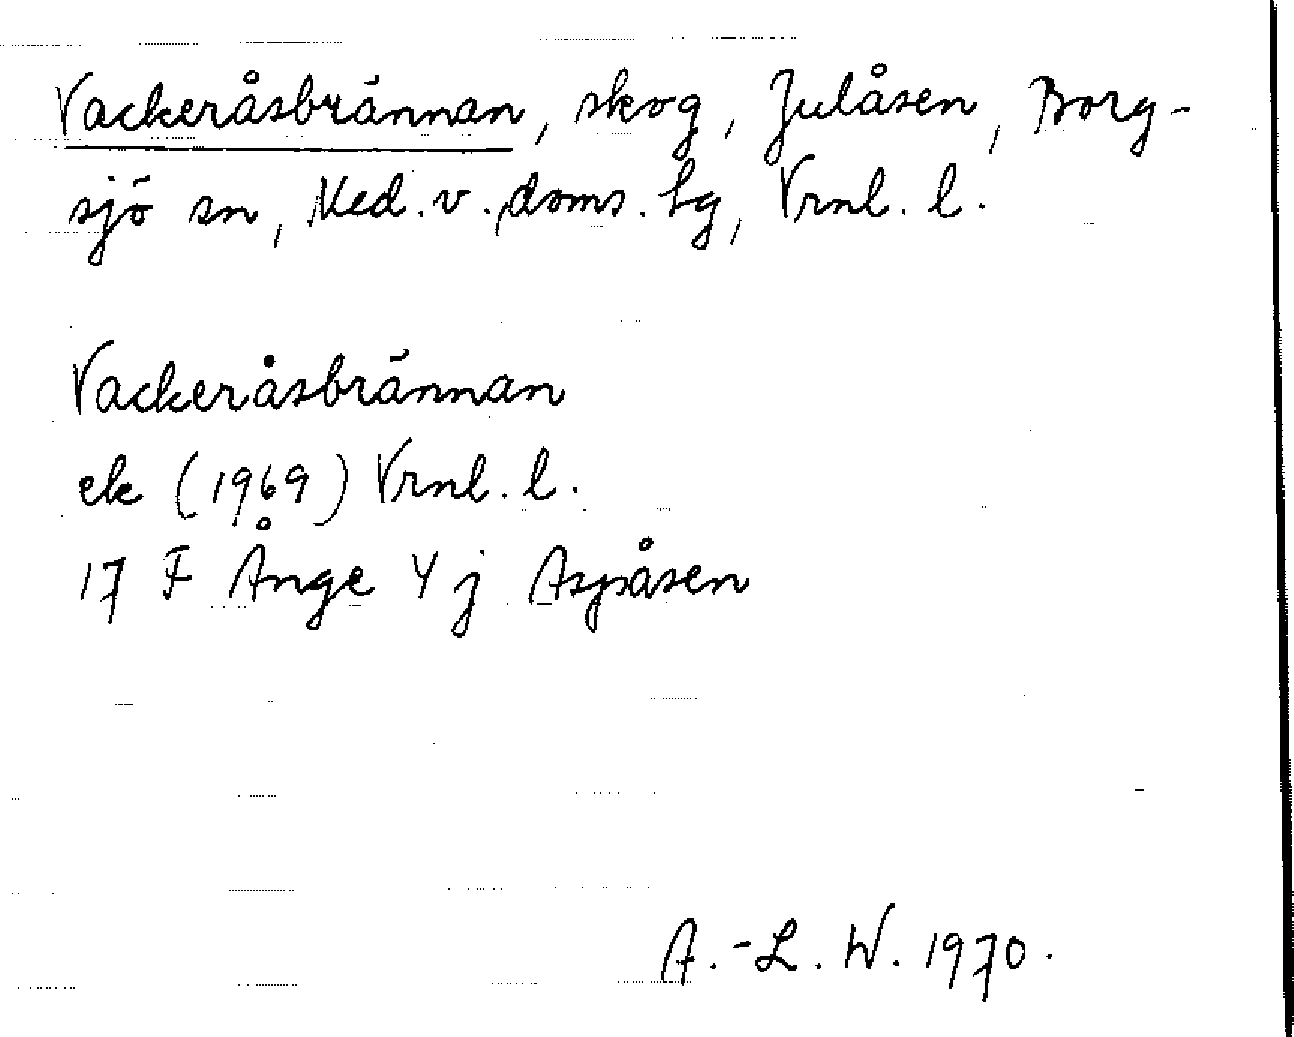 Vackeråsbrännan, skog, Julåsen, Borg-
sjö sn, Med. v. doms. lg, Vrnl. l.
Vackeråsbrännan
ek (1969) Vrnl. l.
17 F Ånge 4 j Aspåsen
A.-L. W. 1970.